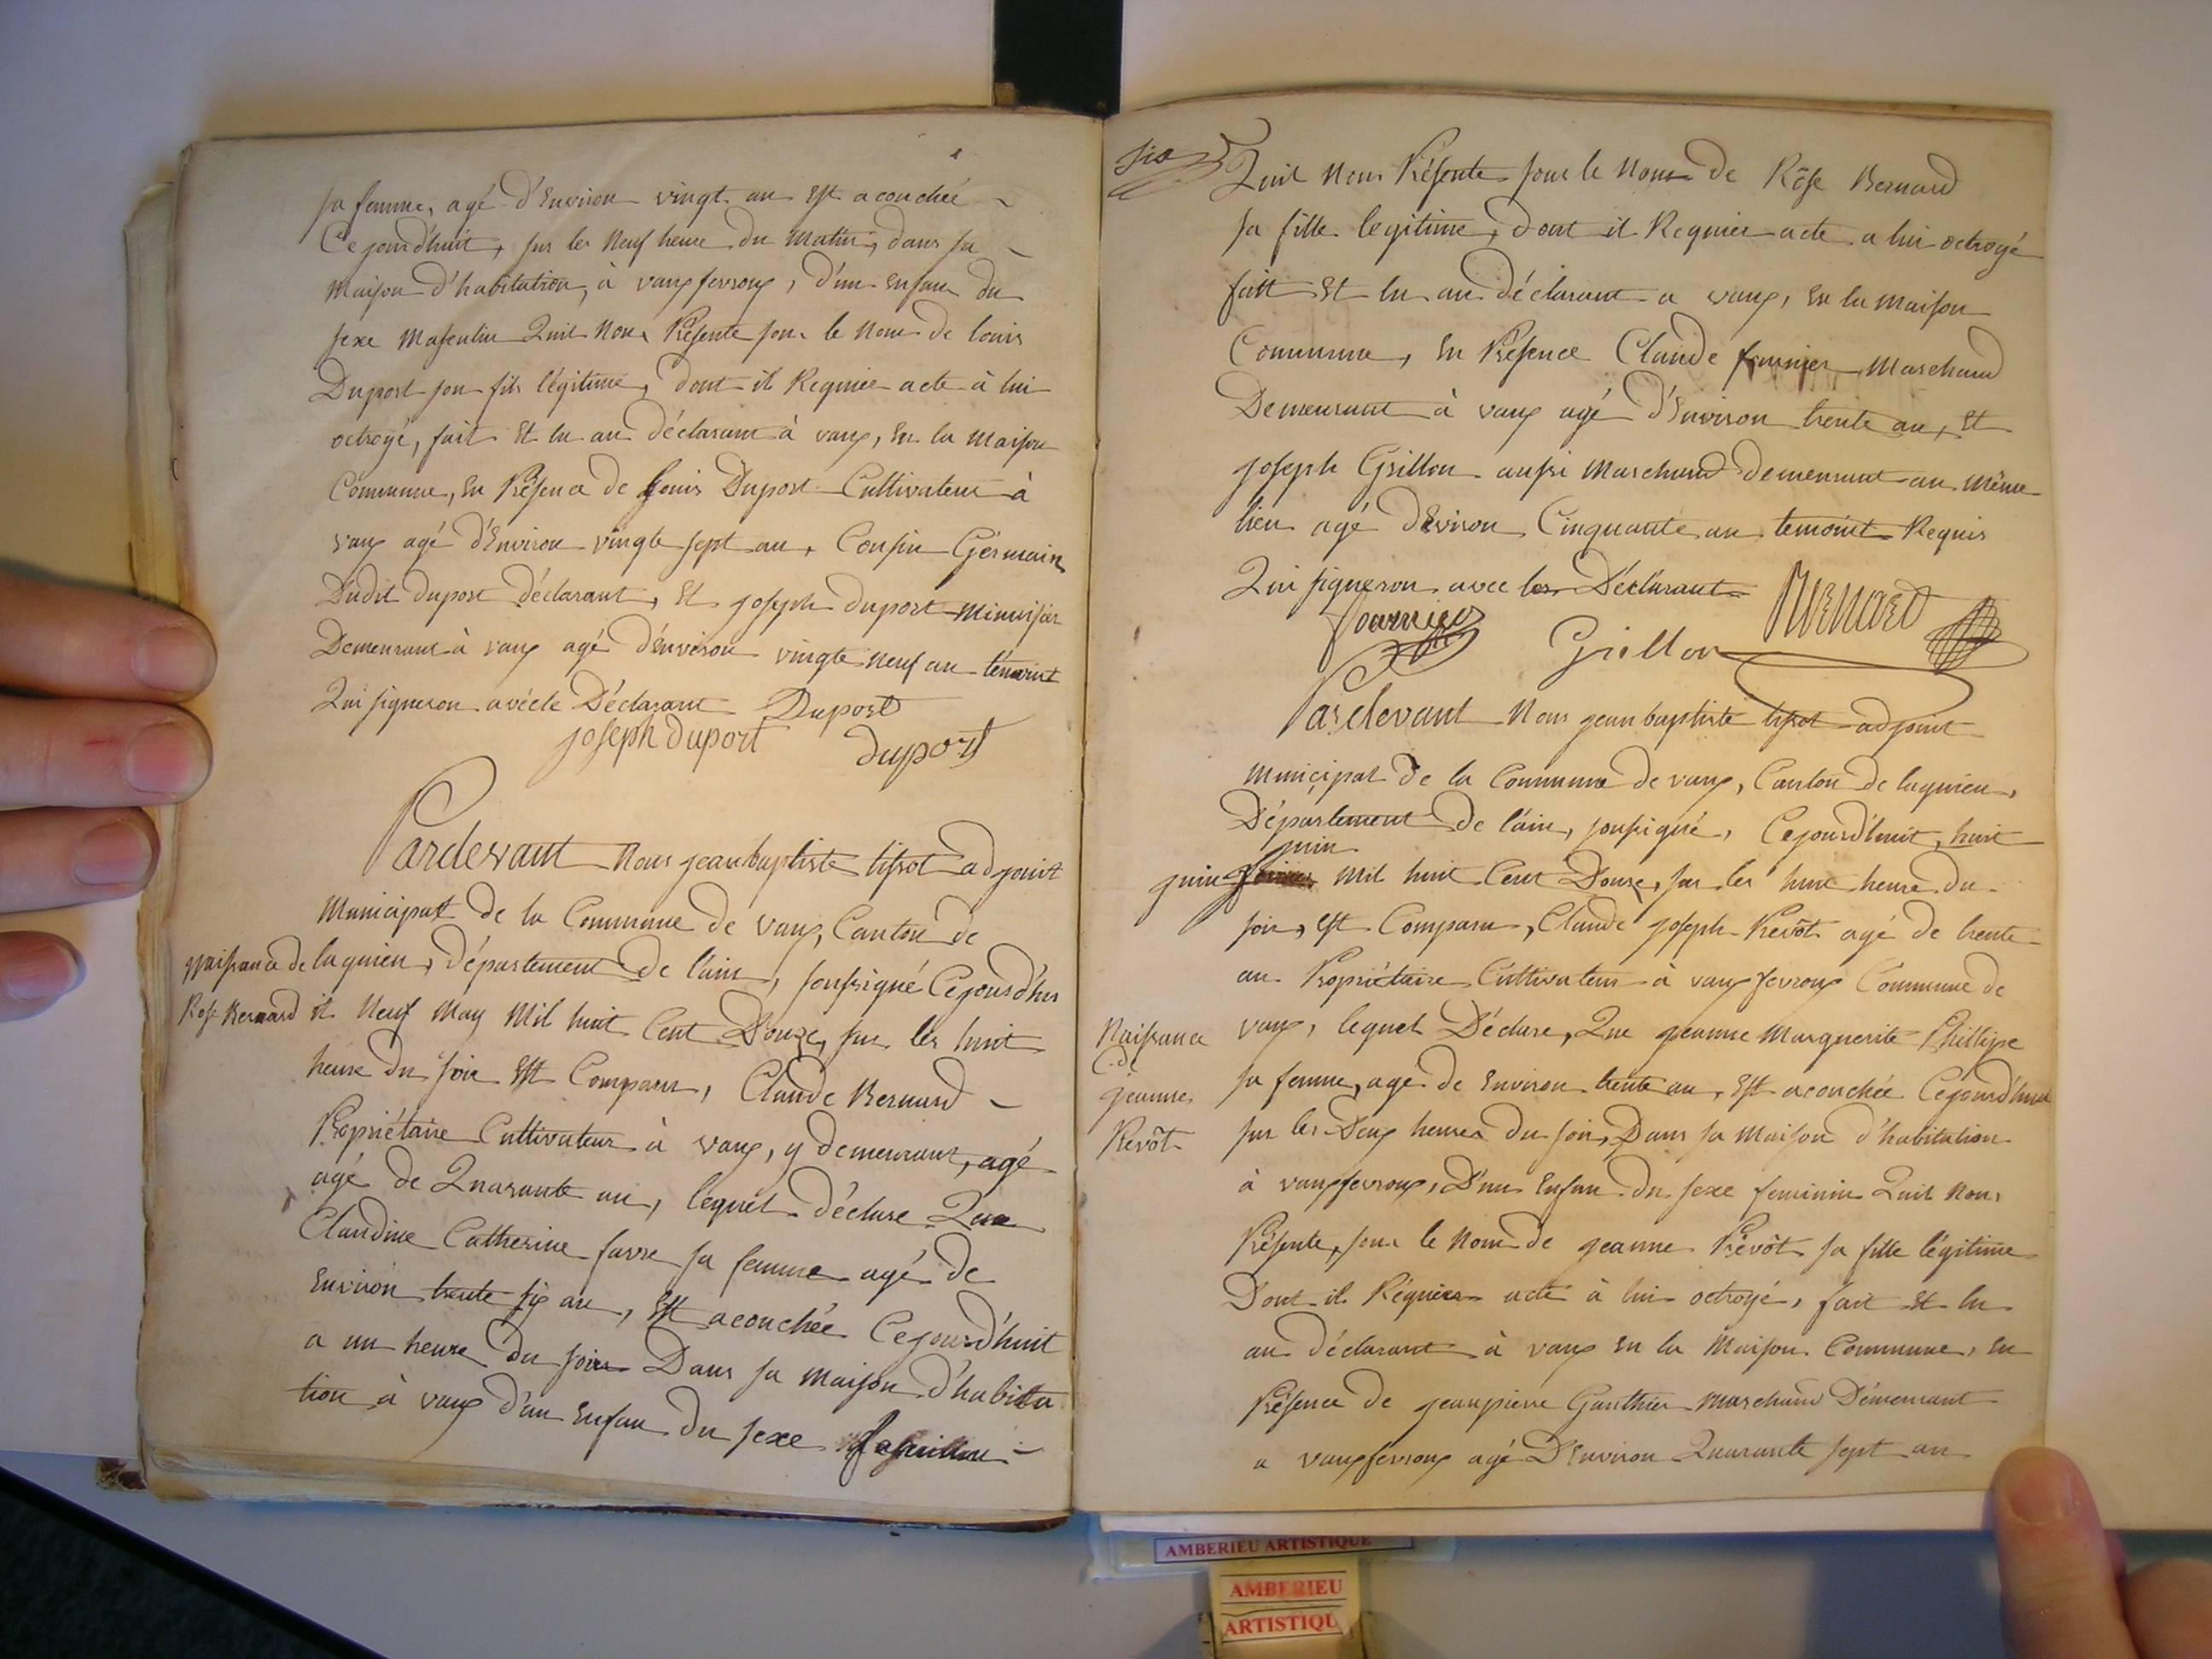 sa femme, agé d'Environ vingt an Est acouchée
Cejourd'huit, sur les Neuf heure du Matin, dans sa
Maison d'habitation, à vauxfevroux, d'un Enfan du
sexe Masculin Quil Nous Présente sous le Nom de louis
Duport son fils légitime, dont il Requier acte à lui
octroyé, fait Et lu au déclarant à vaux, En la Maison
Commune, En Présence de Louis Duport Cultivateur à
vaux agé d'Environ vingte sept an, Cousin Germain
Dudit duport déclarant, Et joseph duport Minuisier
Demeurant à vaux agé d'Environ vingte Neuf an temoint
Qui signeron avéc le Déclarant Duport
joseph duport duport
Pardevant Nous jeanbaptiste tissot adjoint
Municipal de la Commune de vaux, Canton de
Naissance de
Rose Bernard
lagnieu, département de l'ain, soussigné Cejourd'hu
it Neuf May Mil huit Cent Douze, sur les huit
heure du soir Est Comparu, Claude Bernard
Propriétaire Cultivateur à vaux, y demeurant, agé
agé de Quarante an, lequel déclare Que
Claudine Catherine favre sa femme agé de
Environ trente six an, Est acouchée Cejourd'huit
a un heure du soir Dans sa Maison d'habita
tion à vaux d'un Enfan du sexe
Quil Nous Présente sous le Nom de Rôse Bernard
sa fille legitime, dont il Requier acte a lui octroyé
fait Et lu au déclarant a vaux, En la Maison
Commune, En Présence Claude fournier Marchand
Demeurant à vaux agé d'Environ trente an, Et
joseph Grillon aussi Marchand demeurant au même
lieu agé d'Eviron Cinquante an temoint Requis
Qui signeron avec les Déclarant Bernard
fournier Grillon
Pardevant Nous jeanbaptiste tissot adjoint
Municipal de la Commune de vaux, Canton de lagnieu,
Département de l'ain, soussigné, Cejourd'huit, huit
juin
juin Mil huit Cent Douze, sur les huit heure du
soir, Est Comparu, Claude joseph Prévôt agé de trente
an Propriétaire Cultivateur à vauxfevroux Commune de
Naissance
de
jeanne
Prévôt
vaux, lequel Déclare, Que jeanne Marguerite Phillipe
sa femme, agé de Environ trente an, Est acouchée Cejourd'huit
sur les Deux heures du soir, Dans sa Maison d'habitation
à vauxfevroux, D'un Enfan du sexe feminin Quil Nous
Présente, sous le Nom de jeanne Prévôt sa fille légitime
Dont il Réquier acte à lui octroyé, fait Et lu
au déclarant à vaux En la Maison Commune, En
Présence de jeanpierre Gauthier Marchand Démeurant
a vauxfevroux agé D'Environ Quarante sept an
AMBERIEU ARTISTIQUE
AMBERIEU
ARTISTIQU